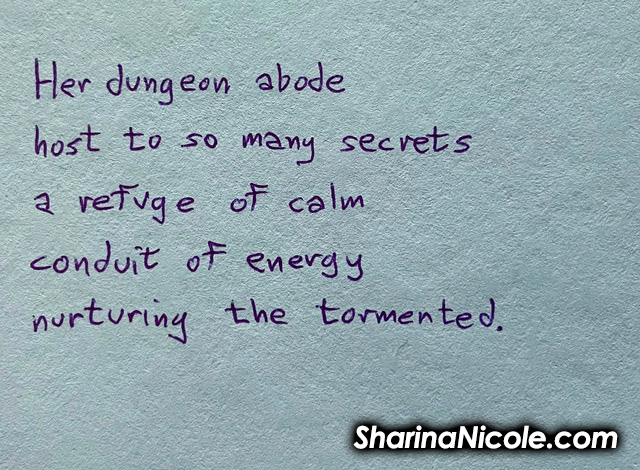 Her dungeon abode
host to so many secrets
a refuge of calm
conduit of energy
nurturing the tormented.
SharinaNicole.com